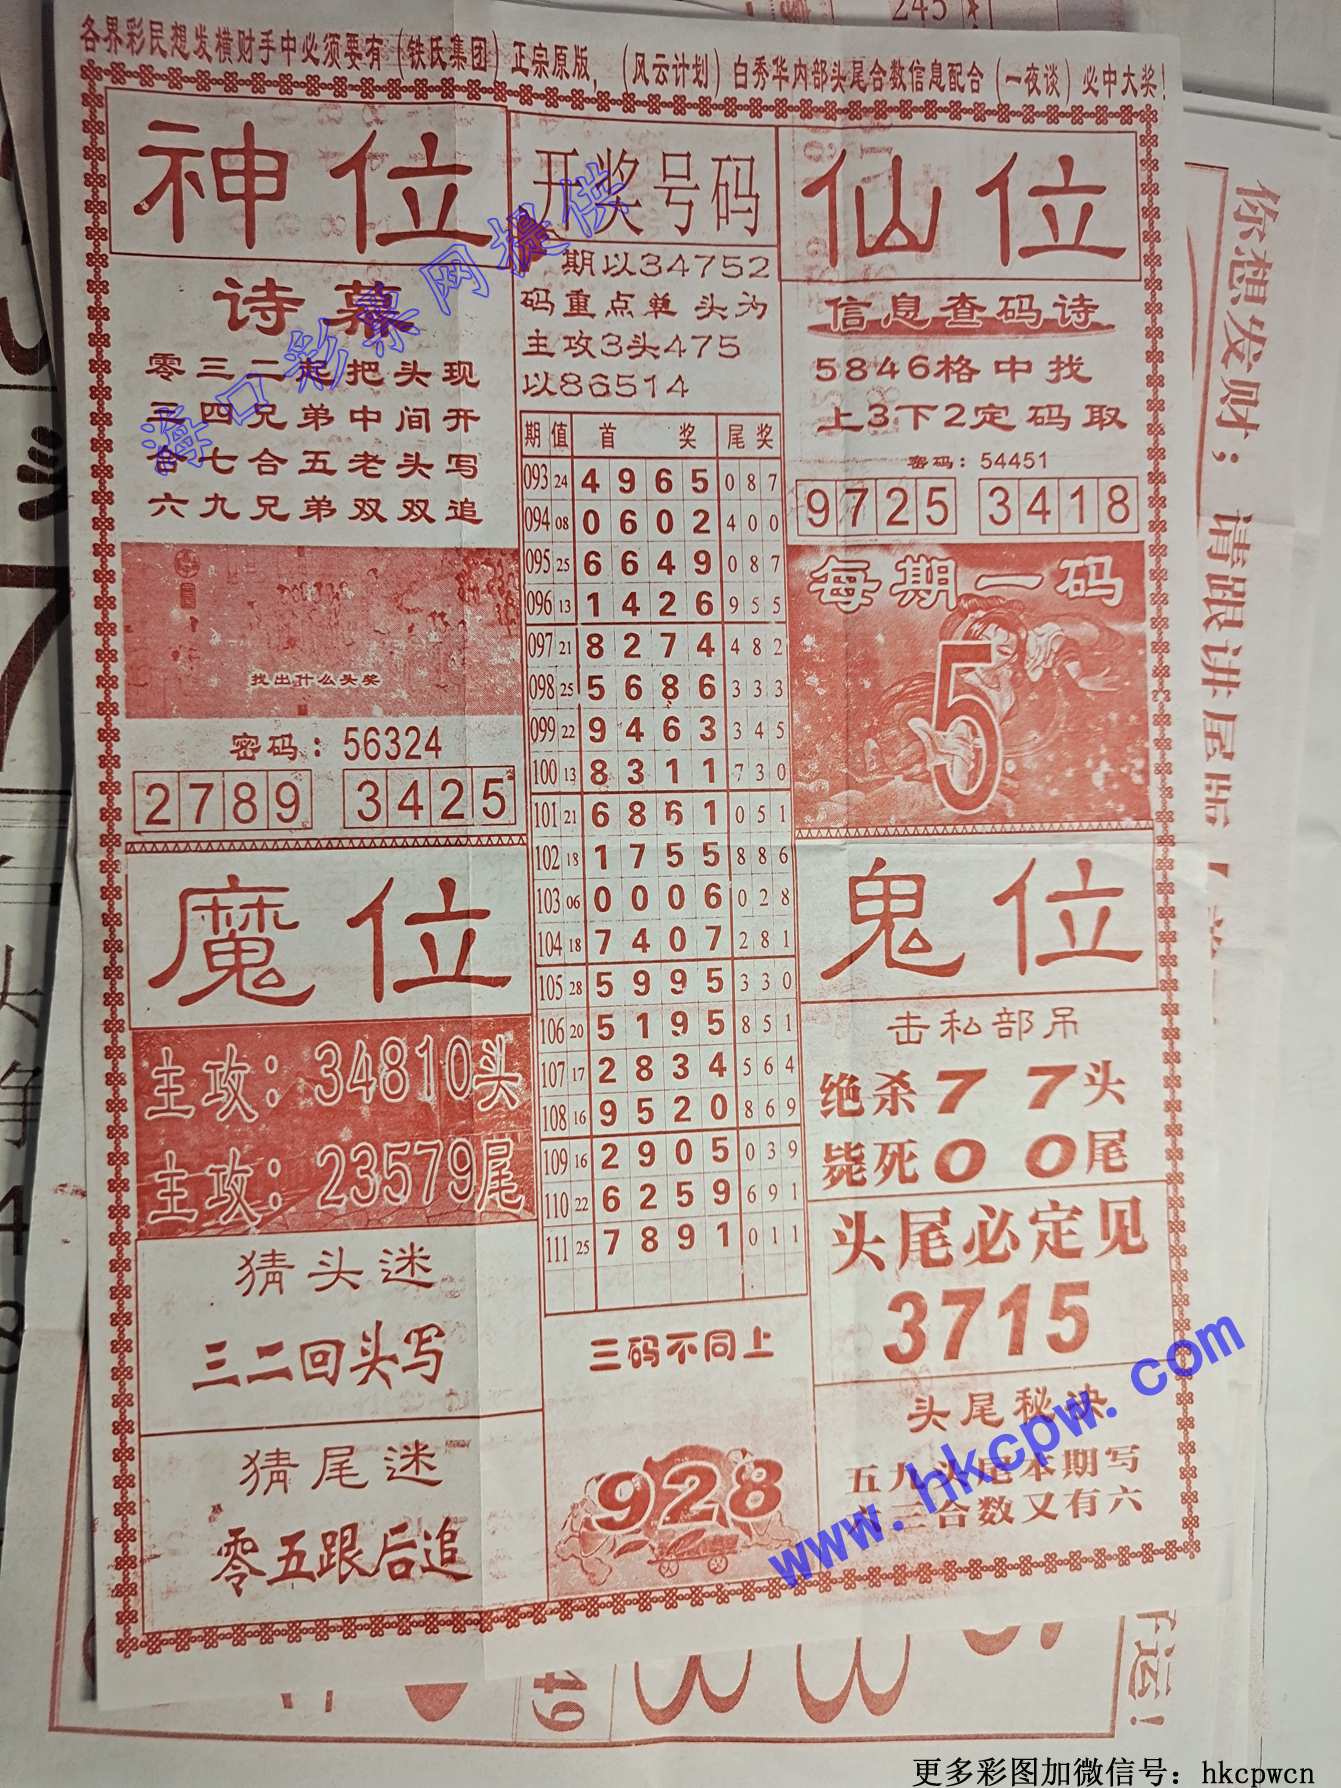 各界彩民想发横财手中必须要有（铁氏集团）正宗原版，（风云计划）白秀华内部头尾合数信息配合（一夜谈）必中大奖！
神位
诗幕
零三二起把头现
三四兄弟中间开
合七合五老头写
六九兄弟双双追
找出什么头奖
密码：56324
2789 3425
开奖号码
期以34752
码重点单 头为
主攻3头475
以86514
期 值 首 奖 尾奖
093 24 4965 087
094 08 0602 400
095 25 6649 087
096 13 1426 955
097 21 8274 482
098 25 5686 333
099 22 9463 345
100 13 8311 730
101 21 6861 051
102 18 1755 886
103 06 0006 028
104 18 7407 281
105 28 5995 330
106 20 5195 851
107 17 2834 564
108 16 9520 869
109 16 2905 039
110 22 6259 691
111 25 7891 011
三码不同上
928
仙位
信息查码诗
5846格中找
上3下2定码取
密码：54451
9725 3418
每期一码
5
魔位
主攻：34810头
主攻：23579尾
猜头迷
三二回头写
猜尾迷
零五跟后追
鬼位
击私部吊
绝杀77头
毙死00尾
头尾必定见
3715
头尾秘决
五九头尾本期写
六三合数又有六
海口彩票网提供
www.hkcpw.com
你想发财；请跟讲尾版
245
49
更多彩图加微信号：hkcpwcn